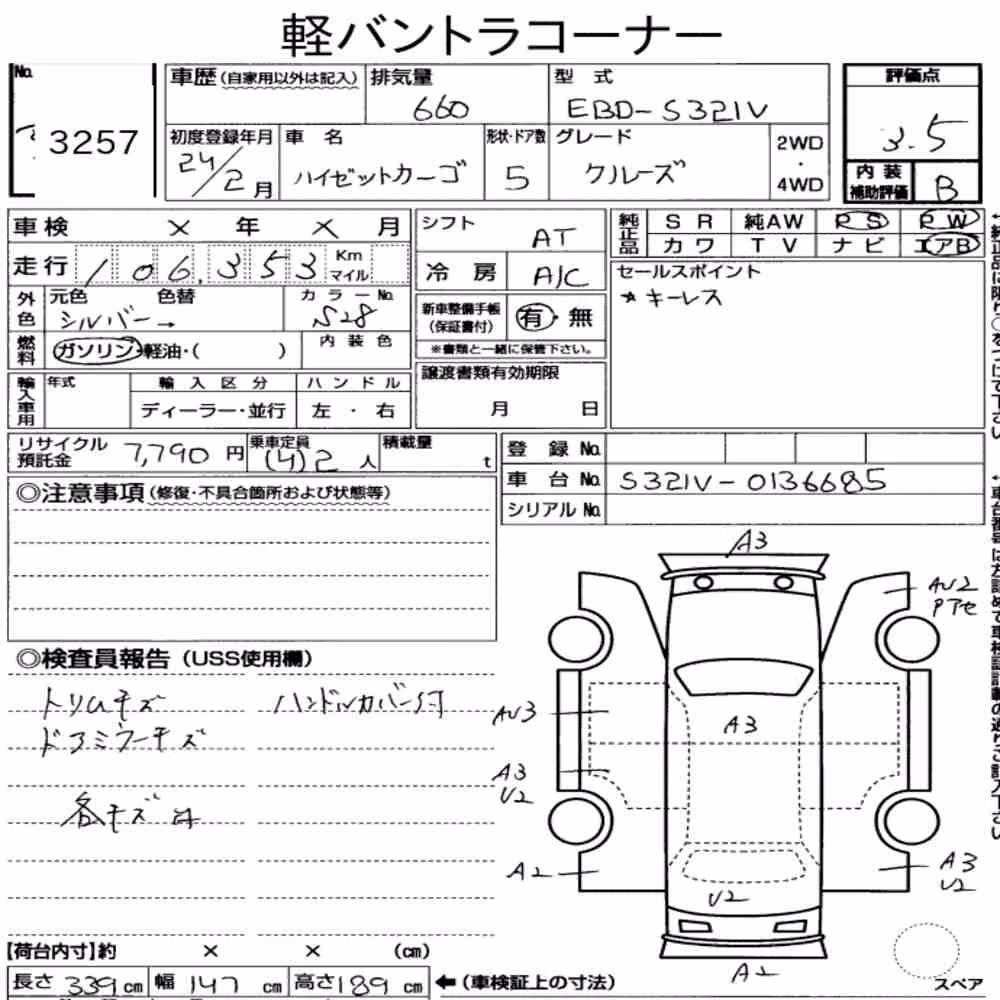 軽バントラコーナー
No. 3257
車歴 (自家用以外は記入) 排気量 660 型式 EBD-S321V
初度登録年月 24/2月 車名 ハイゼットカーゴ 形状・ドア数 5 グレード クルーズ 2WD ・ 4WD
評価点 3.5
内装補助評価 B
車検 × 年 × 月
走行 106,353 Km マイル
外色 元色 シルバー→ 色替 カラーNo. S28
燃料 ガソリン・軽油・( ) 内装色
輸入車用 年式 輸入区分 ディーラー・並行 ハンドル 左・右
シフト AT
冷房 A/C
新車整備手帳 (保証書付) 有・無
※書類と一緒に保管下さい。
譲渡書類有効期限
月 日
純正品 SR 純AW PS PW
カワ TV ナビ エアB
セールスポイント
★キーレス
リサイクル預託金 7,790円 乗車定員 (4)2人 積載量 t
登録No.
車台No. S321V-0136685
シリアルNo.
◎注意事項 (修復・不具合箇所および状態等)
◎検査員報告 (USS使用欄)
トリムキズ ハンドルカバー付
ドアミラーキズ
各キズ
A3
AU2
Pアセ
AU3
A3
A3
U2
A2
A3
U2
U2
A2
【荷台内寸】約 × × (cm)
長さ 339cm 幅 147cm 高さ 189cm ←(車検証上の寸法)
スペア
←純正品に限り○をつけて下さい